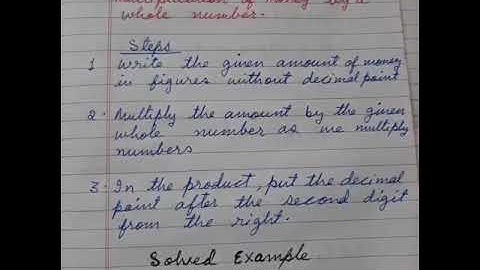 multiplication of money by a
whole number.
Steps
1 Write the given amount of money
in figures without decimal point
2. Multiply the amount by the given
whole number as we multiply
numbers
3. In the product, put the decimal
point after the second digit
from the right.
Solved Example